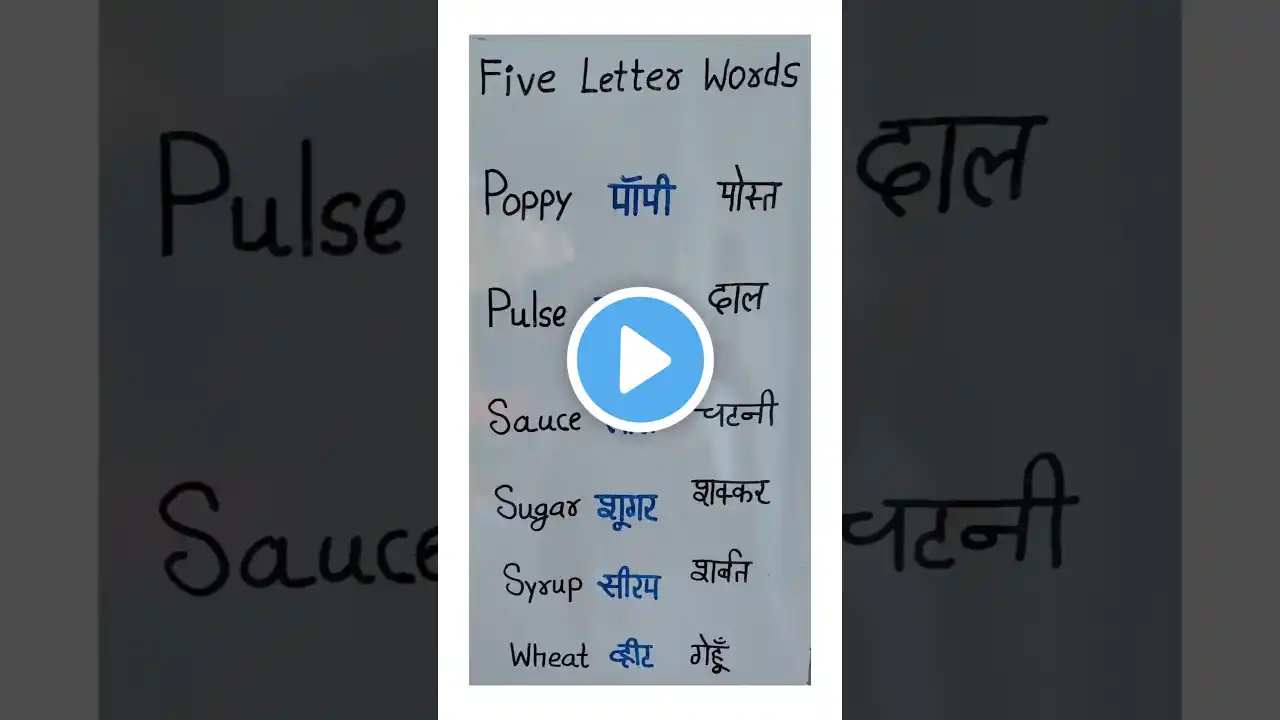 Five Letter Words
Poppy पॉपी पोस्त
Pulse दाल
Sauce चटनी
Sugar शूगर शक्कर
Syrup सीरप शर्बत
Wheat व्हीट गेहूँ
Pulse
Sauce
दाल
चटनी